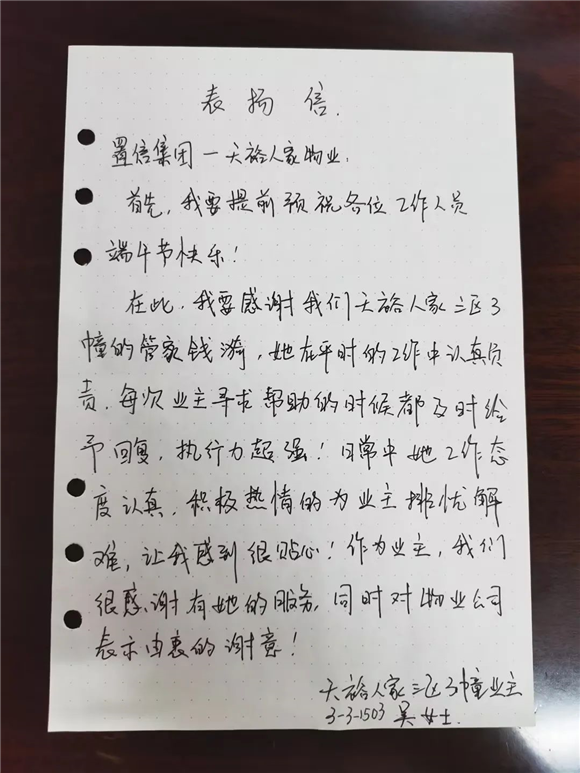 表扬信.
置信集团一天裕人家物业:
首先,我要提前预祝各位工作人员
端午节快乐!
在此,我要感谢我们天裕人家三区3
幢的管家钱漪,她在平时的工作中认真负
责,每次业主寻求帮助的时候都及时给
予回复,执行力超强!日常中她工作态
度认真,积极热情的为业主排忧解
难,让我感到很贴心!作为业主,我们
很感谢有她的服务,同时对物业公司
表示由衷的谢意!
天裕人家三区3幢业主
3-3-1503 吴女士.